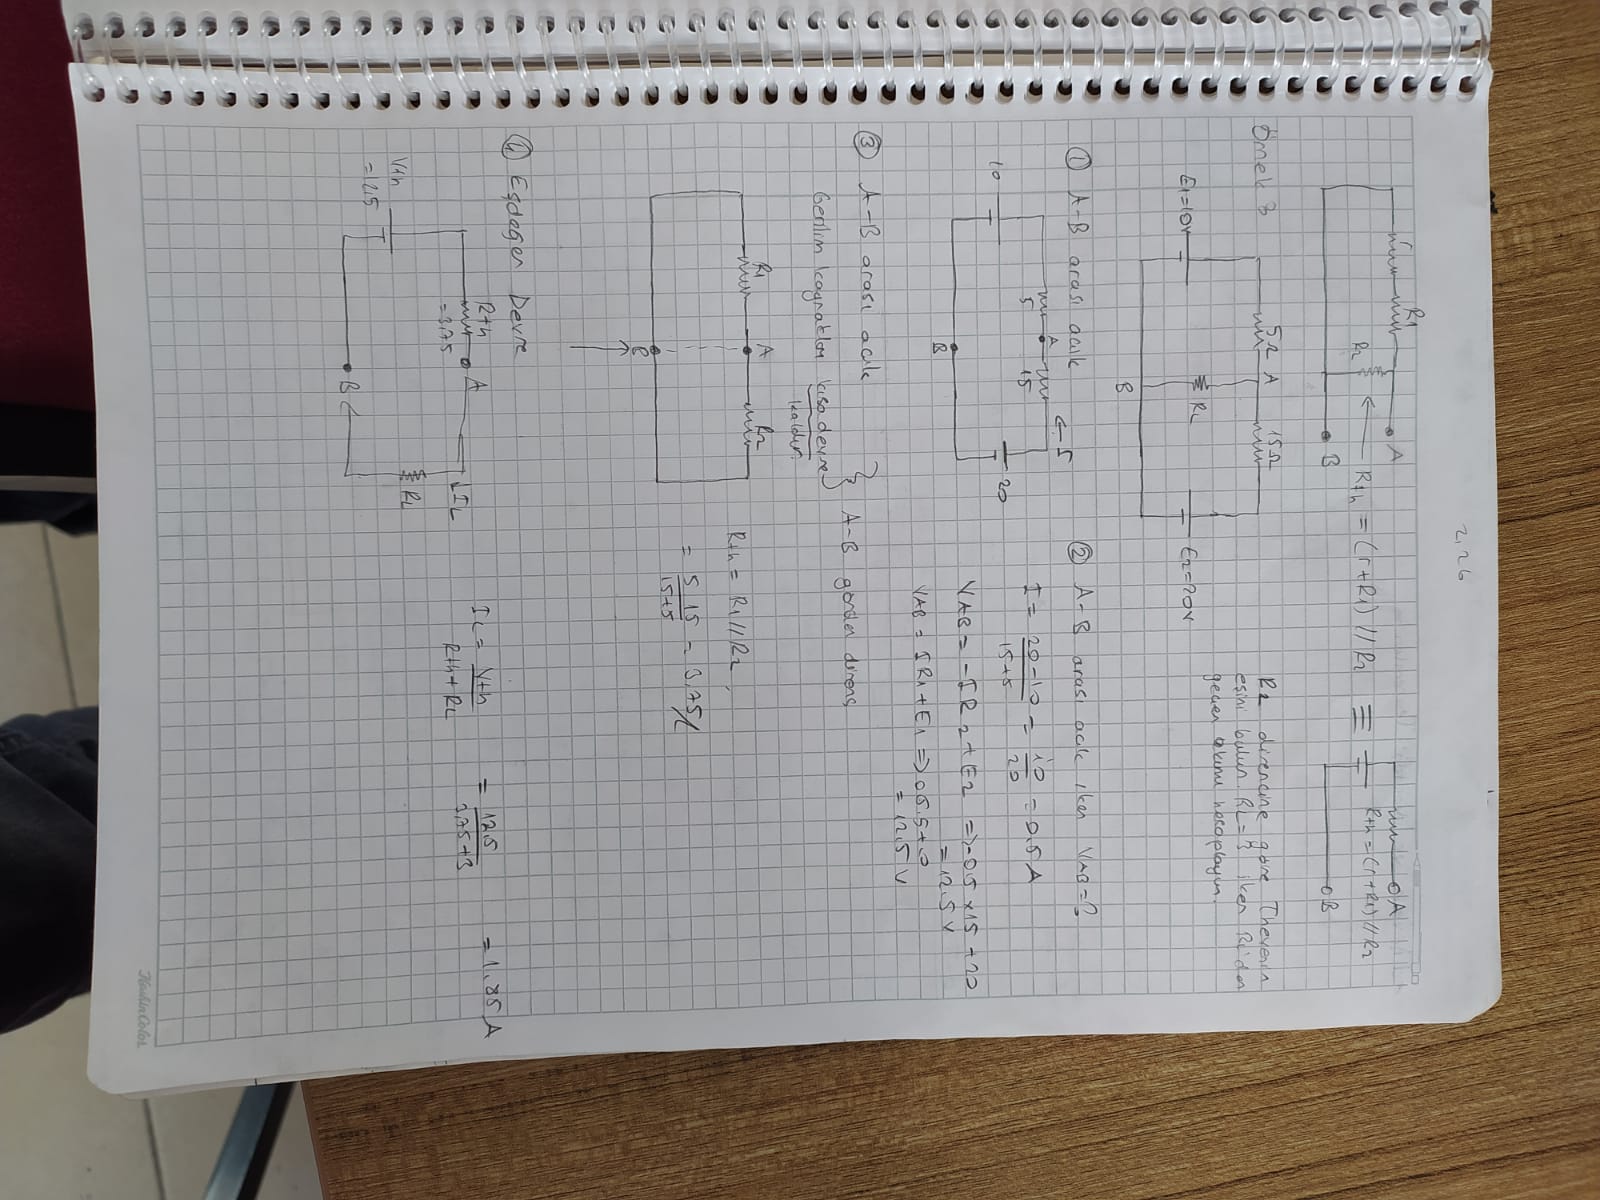 2,26
r R1
A
R2
Rth = (r+R1) // R2 ≡
B
A
Rth = (r+R1) // R2
B
Örnek 3
5Ω A 15Ω
E1=10V
RL
E2=20V
B
RL direncine göre Thevenin
eşini bulun. RL=3 iken RL'den
geçen akımı hesaplayın.
① A-B arası açık
A ← I
5 15
10
20
B
② A-B arası açık iken VAB=?
I = 20-10 / 15+5 = 10 / 20 = 0.5 A
VAB = -IR2 + E2 => -0.5 x15 + 20
= 12.5 V
VAB = IR1 + E1 => 0.5.5+10
= 12.5 V
③ A-B arası açık
Gerilim kaynakları kısa devre
kaldır.
A-B görülen direnç
R1 A R2
B
Rth = R1//R2
= 5.15 / 15+5 = 3,75
④ Eşdeğer Devre
Rth
=3.75
A
↓IL
Vth
=12.5
RL
B
IL = Vth / Rth+RL = 12.5 / 3.75+3 = 1.85 A
KeskinColor